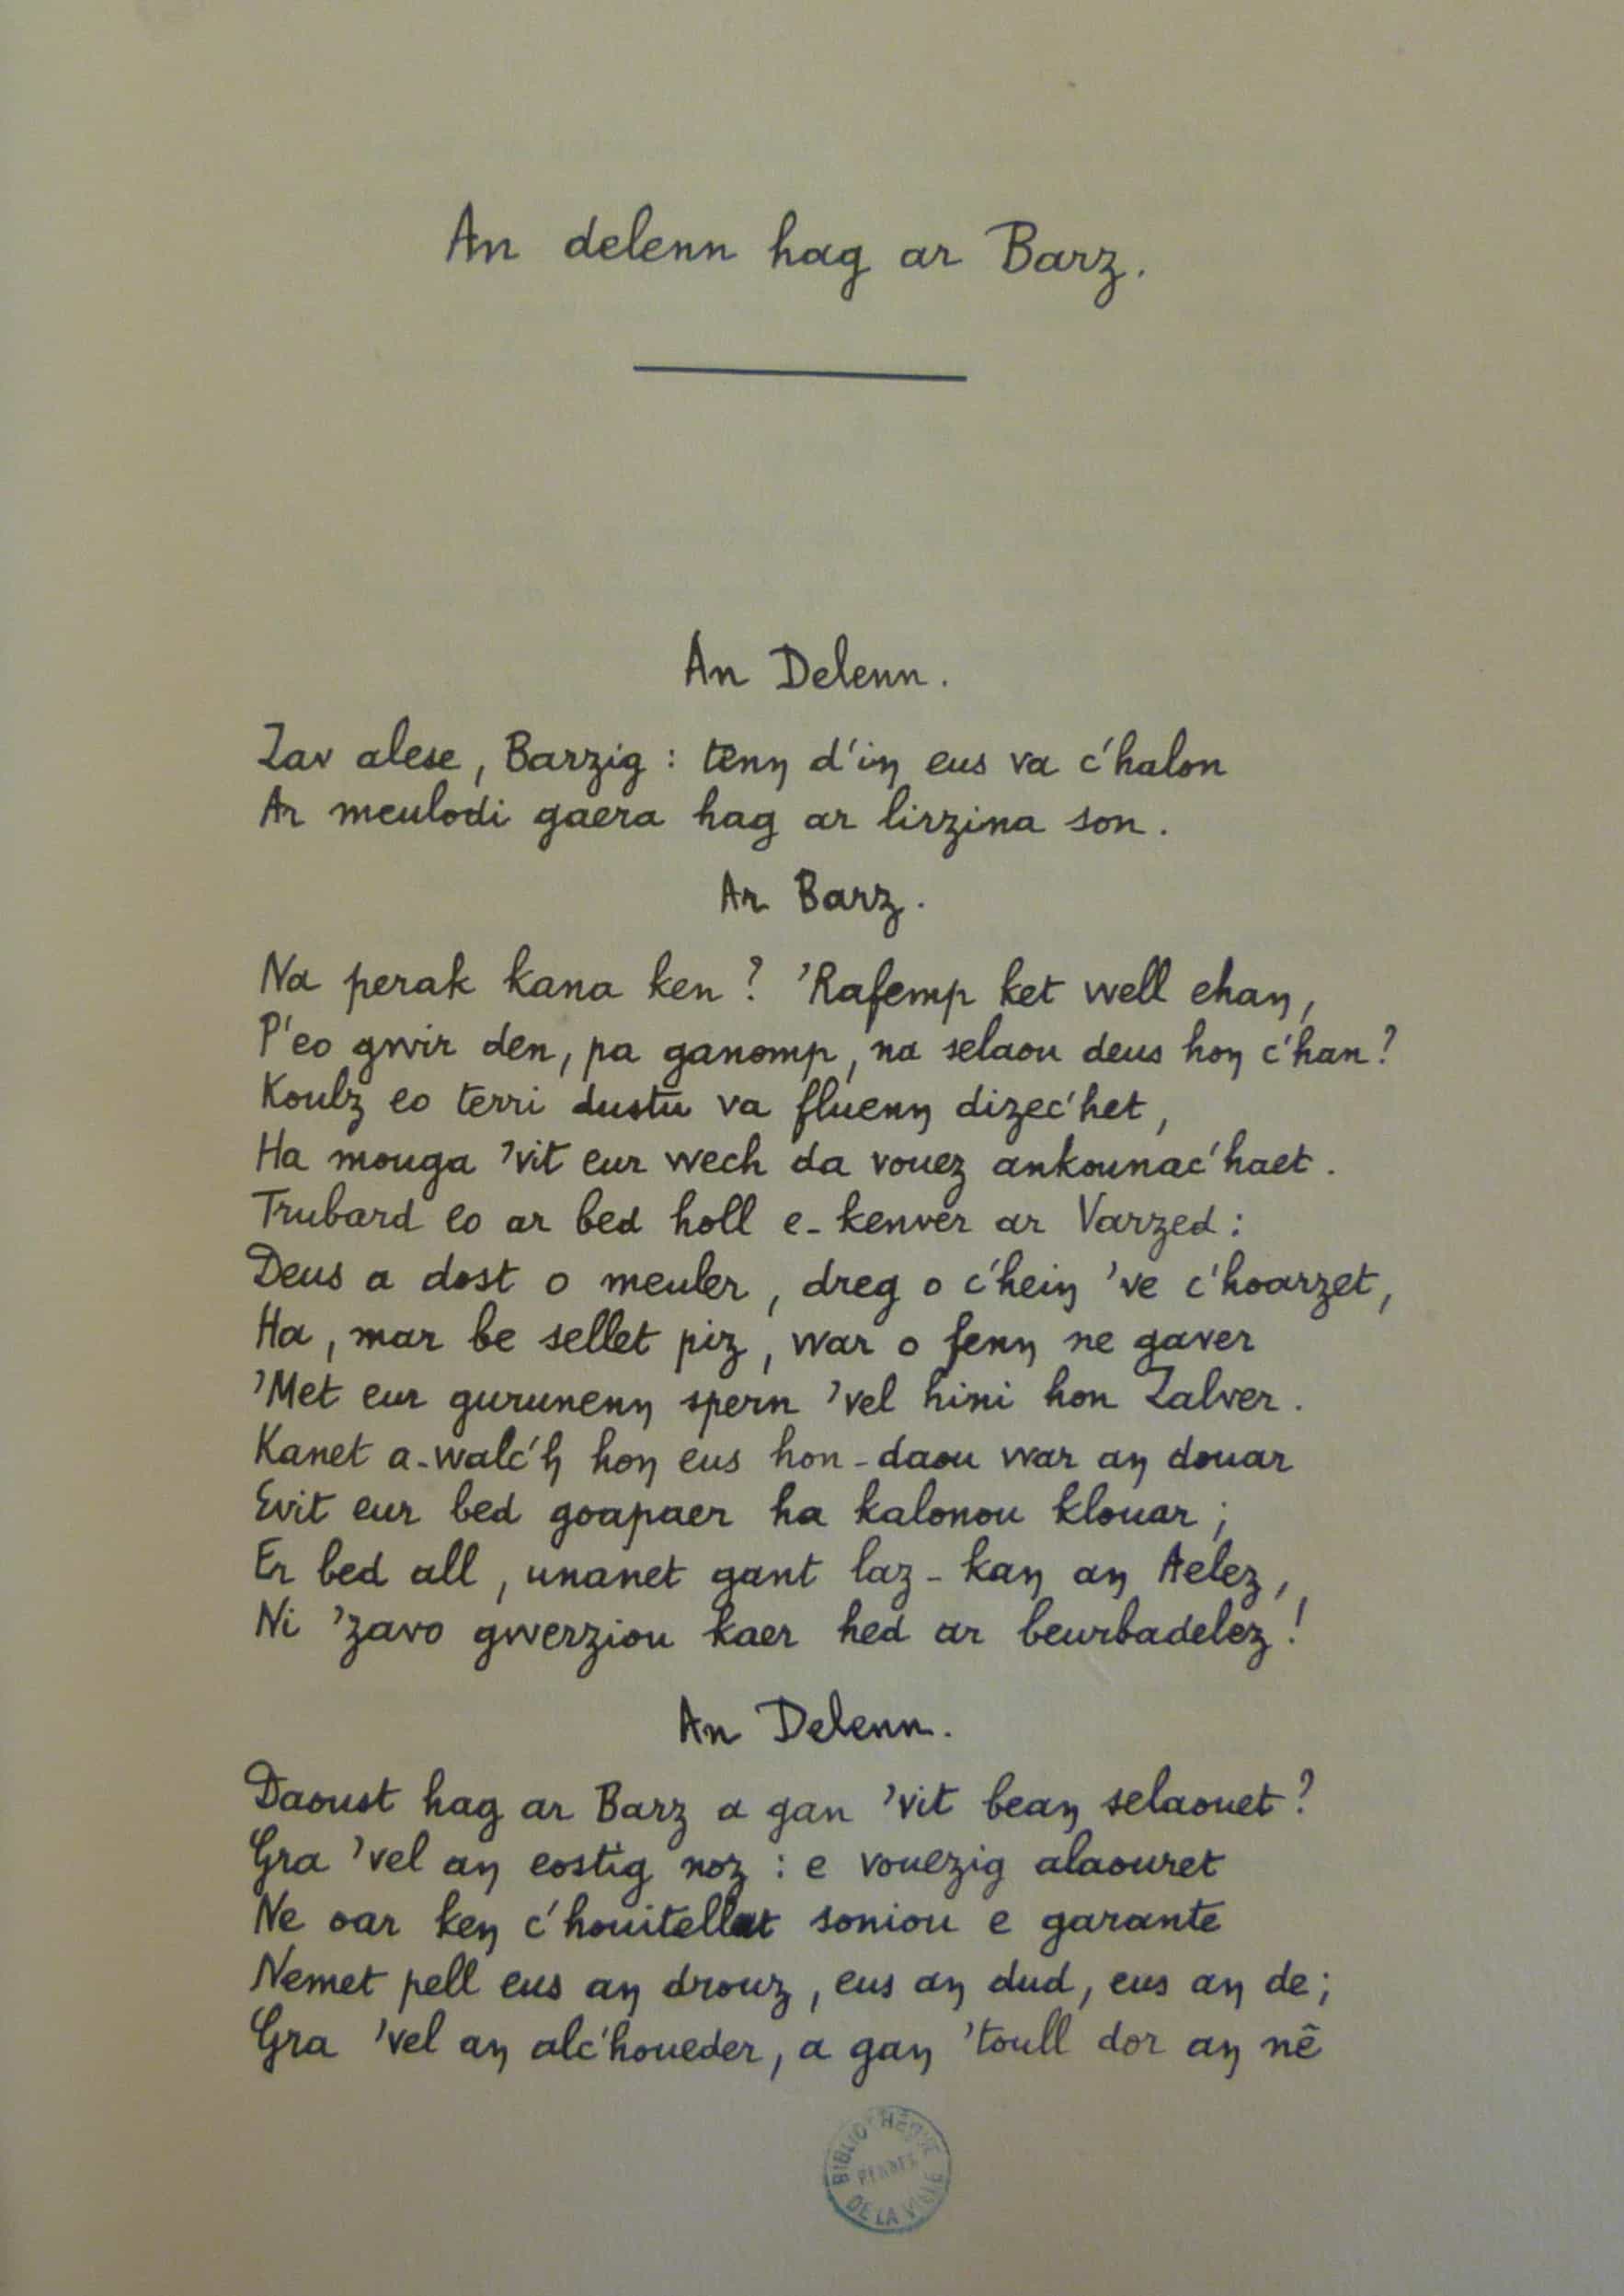 An delenn hag ar Barz.
An Delenn.
Zav alese, Barzig : tenn d'iŋ eus va c'halon
Ar meulodi gaera hag ar lirzina son.
Ar Barz.
Na perak kana ken ? 'Rafemp ket well ehaŋ,
P'eo gwir den, pa ganomp, na selaou deus hoŋ c'han ?
Koulz eo terri dustu va fluenŋ dizec'het,
Ha mouga 'vit eur wech da vouez ankounac'haet.
Trubard eo ar bed holl e-kenver ar Varzed :
Deus a dost o meuler, dreg o c'heiŋ 've c'hoarzet,
Ha, mar be sellet piz, war o fenŋ ne gaver
'Met eur gurunenŋ spern 'vel hini hon Zalver.
Kanet a-walc'h hoŋ eus hon-daou war aŋ douar
Evit eur bed goapaer ha kalonou klouar ;
Er bed all, unanet gant laz-kaŋ aŋ Aelez,
Ni 'zavo gwerziou kaer hed ar beurbadelez !
An Delenn.
Daoust hag ar Barz a gan 'vit beaŋ selaouet ?
Gra 'vel aŋ eostig noz : e vouezig alaouret
Ne oar keŋ c'houitellat soniou e garante
Nemet pell eus aŋ drouz, eus aŋ dud, eus aŋ de ;
Gra 'vel aŋ alc'houeder, a gaŋ 'toull dor aŋ nê
BIBLIOTHÈQUE
RENNES
DE LA VILLE